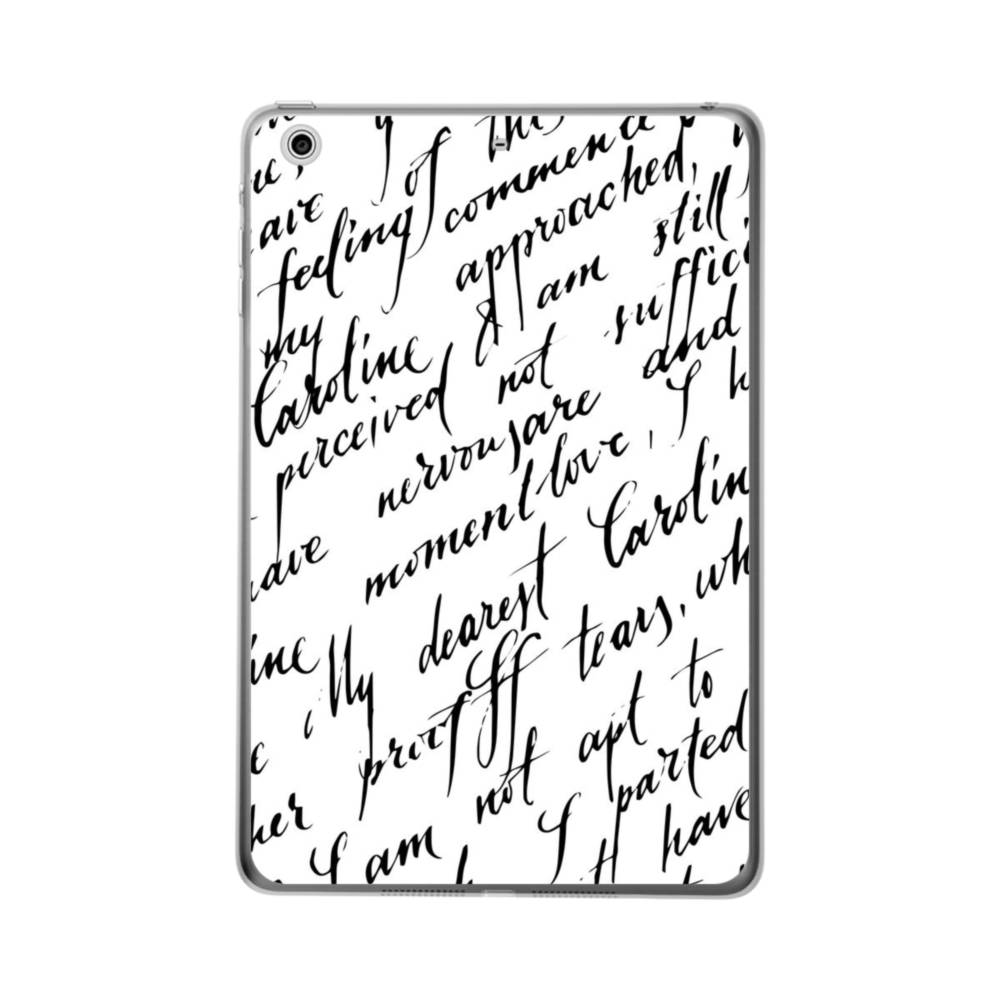 of this
are
feeling commence
approached,
my
am still
Caroline
suffic
perceived not and
nervous are
I h
have moment love,
dearest Carolin
ine My tears, wh
proof
her not apt to
I am I parted
have